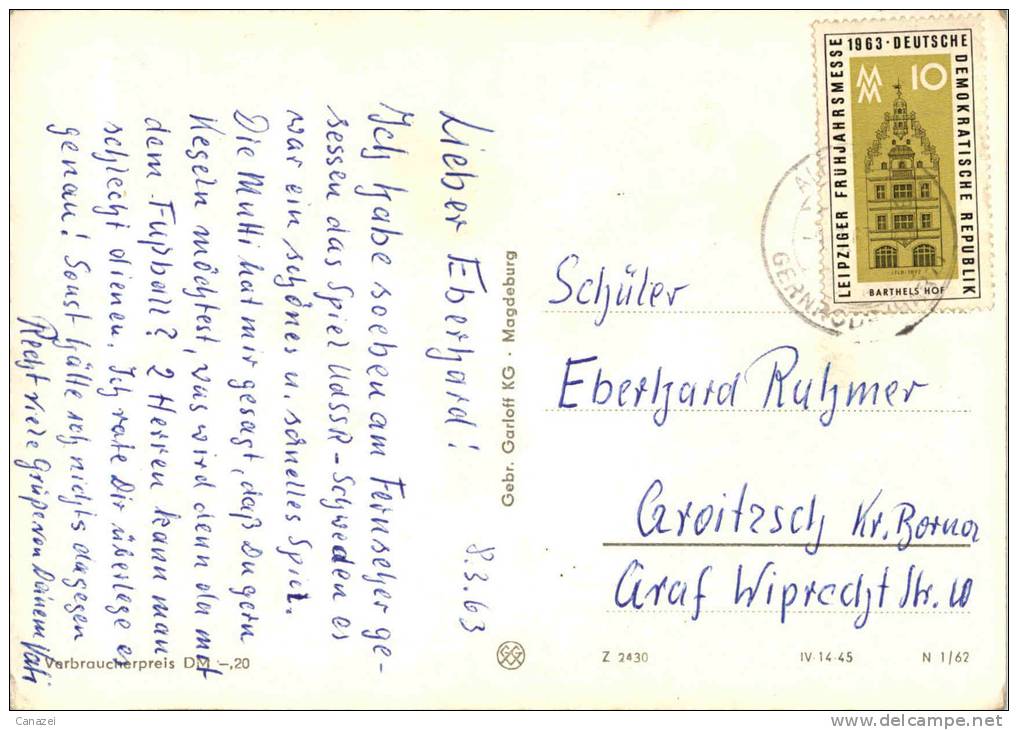 8.3.63
Lieber Eberhard!
Ich habe soeben am Fernseher ge-
sessen das Spiel UdSSR-Schweden es
war ein schönes u. schnelles Spiel.
Die Mutti hat mir gesagt, daß Du gern
Kegeln möchtest, was wird denn da mit
dem Fußball? 2 Herren kann man
schlecht dienen. Ich rate Dir überlege es
genau! Sonst hätte ich nichts dagegen
Recht viele Grüße von Deinem Vati
Verbraucherpreis DM -,20
Gebr. Garloff KG · Magdeburg
LEIPZIGER FRÜHJAHRSMESSE 1963 · DEUTSCHE DEMOKRATISCHE REPUBLIK
MM 10
BARTHELS HOF
GERNRODE
Schüler
Eberhard Ruhmer
Groitzsch Kr. Borna
Graf Wiprecht Str. 10
Z 2430 IV-14-45 N 1/62
Canazei
www.delcampe.net